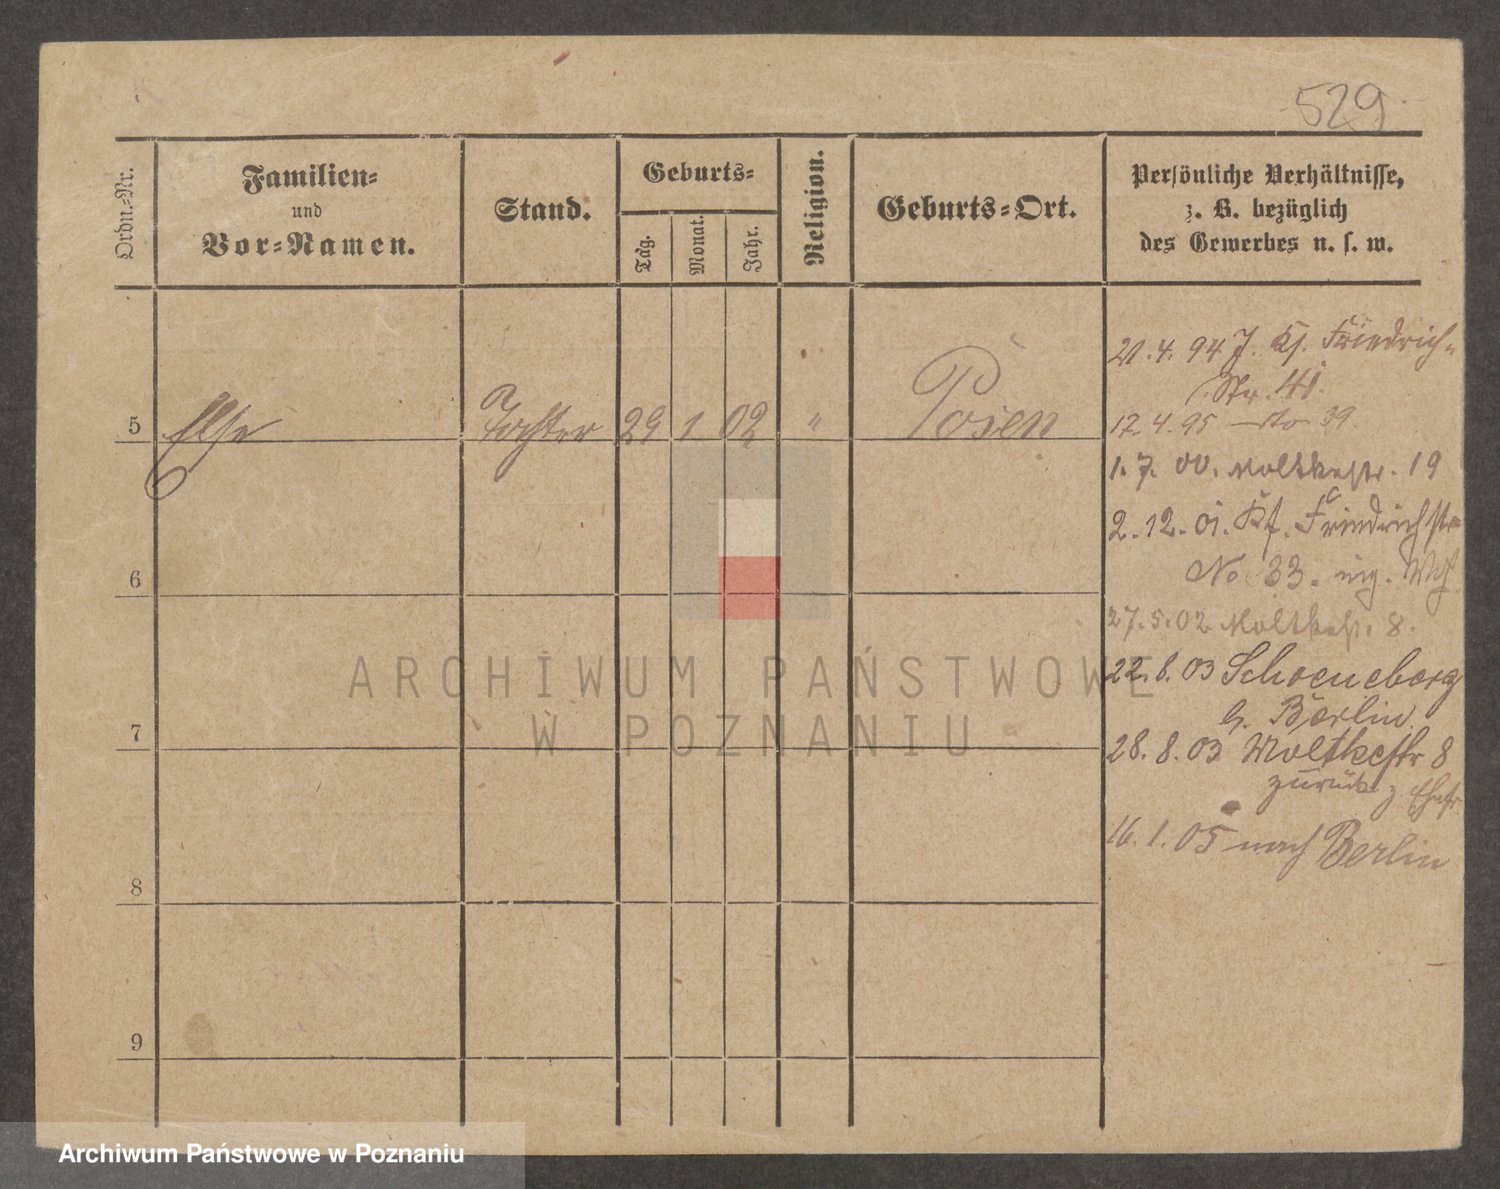 529
Ordn.-Nr.
Familien-
und
Vor-Namen.
Stand.
Geburts-
Tag.
Monat.
Jahr.
Religion.
Geburts-Ort.
Persönliche Verhältnisse,
z. B. bezüglich
des Gewerbes u. s. w.
5 Else Tochter 29 1 02 " Posen
6
7
8
9
21.4.94 Friedrich-
Str. 41.
17.4.95 do 39.
1.7.00. Moltkestr. 19
2.12.01. Kl. Friedrichstr
No 33.
27.5.02 Moltkestr. 8.
22.8.03 Schoeneberg
b. Berlin.
28.8.03 Moltkestr 8
zurück z.
16.1.05 nach Berlin
ARCHIWUM PAŃSTWOWE
W POZNANIU
Archiwum Państwowe w Poznaniu